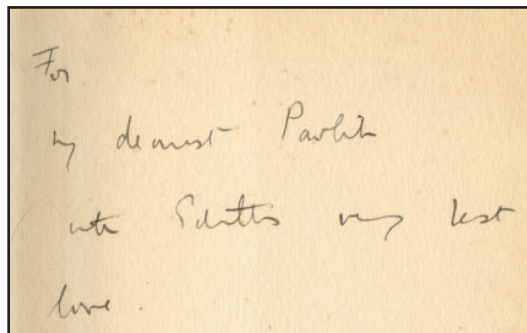 For
my dearest Pavlik
with Edith's very best
love.